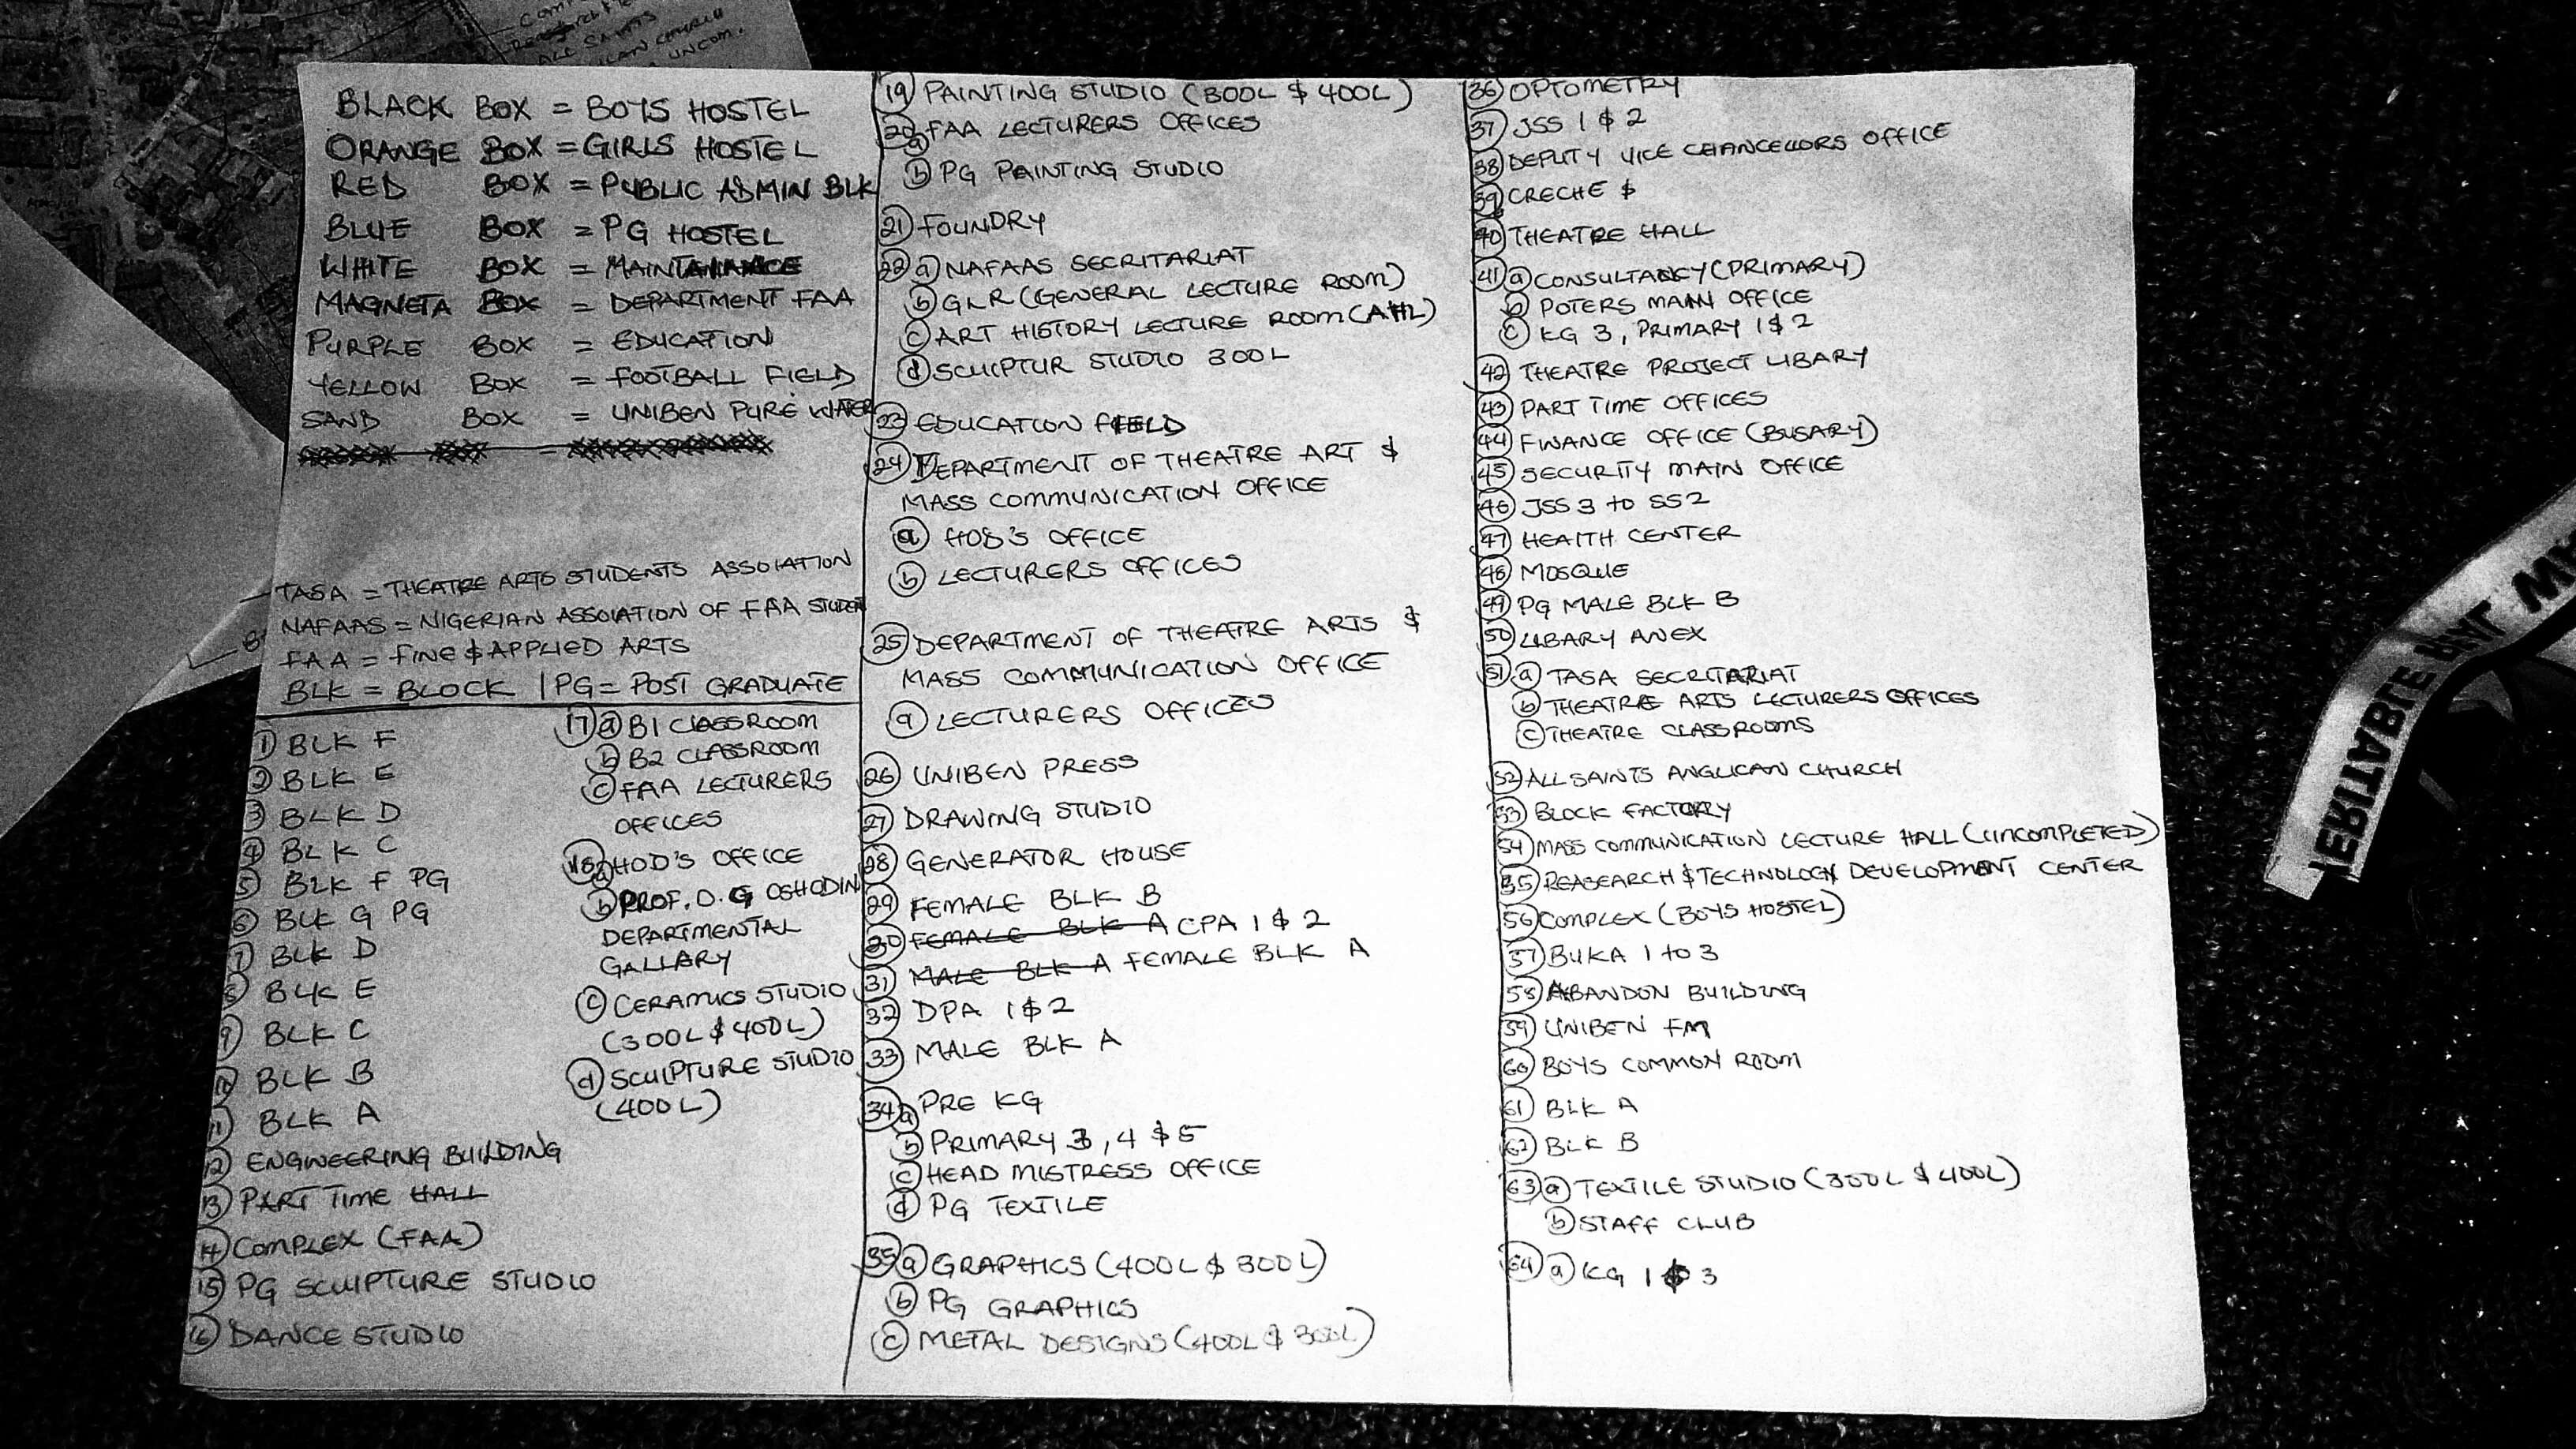 BLACK BOX = BOYS HOSTEL
ORANGE BOX = GIRLS HOSTEL
RED BOX = PUBLIC ADMIN BLK
BLUE BOX = PG HOSTEL
WHITE BOX = MAINTANANCE
MAGNETA BOX = DEPARTMENT FAA
PURPLE BOX = EDUCATION
YELLOW BOX = FOOTBALL FIELD
SAND BOX = UNIBEN PURE WATER
TASA = THEATRE ARTS STUDENTS ASSOIATION
NAFAAS = NIGERIAN ASSOIATION OF FAA STUDENT
FAA = FINE & APPLIED ARTS
BLK = BLOCK | PG = POST GRADUATE
1 BLK F
2 BLK E
3 BLK D
4 BLK C
5 BLK F PG
6 BLK G PG
7 BLK D
8 BLK E
9 BLK C
10 BLK B
11 BLK A
12 ENGINEERING BUILDING
13 PART TIME HALL
14 COMPLEX (FAA)
15 PG SCULPTURE STUDIO
16 DANCE STUDIO
17 a B1 CLASSROOM
b B2 CLASSROOM
c FAA LECTURERS
OFFICES
18 a HOD'S OFFICE
b PROF. D. G OSHODIN
DEPARTMENTAL
GALLARY
c CERAMICS STUDIO
(300L & 400L)
d SCULPTURE STUDIO
(400L)
19 PAINTING STUDIO (300L & 400L)
20 a FAA LECTURERS OFFICES
b PG PAINTING STUDIO
21 FOUNDRY
22 a NAFAAS SECRITARIAT
b GLR (GENERAL LECTURE ROOM)
c ART HISTORY LECTURE ROOM (AHL)
d SCULPTUR STUDIO 300L
23 EDUCATION FIELD
24 DEPARTMENT OF THEATRE ART &
MASS COMMUNICATION OFFICE
a HOD'S OFFICE
b LECTURERS OFFICES
25 DEPARTMENT OF THEATRE ARTS &
MASS COMMUNICATION OFFICE
a LECTURERS OFFICES
26 UNIBEN PRESS
27 DRAWING STUDIO
28 GENERATOR HOUSE
29 FEMALE BLK B
30 FEMALE BLK A CPA 1 & 2
31 MALE BLK A FEMALE BLK A
32 DPA 1 & 2
33 MALE BLK A
34 a PRE KG
b PRIMARY 3, 4 & 5
c HEAD MISTRESS OFFICE
d PG TEXTILE
35 a GRAPHICS (400L & 300L)
b PG GRAPHICS
c METAL DESIGNS (400L & 300L)
36 OPTOMETRY
37 JSS 1 & 2
38 DEPUTY VICE CHANCELLORS OFFICE
39 CRECHE &
40 THEATRE HALL
41 a CONSULTANCY (PRIMARY)
b POTERS MAIN OFFICE
c KG 3, PRIMARY 1 & 2
42 THEATRE PROJECT LIBARY
43 PART TIME OFFICES
44 FINANCE OFFICE (BUSARY)
45 SECURITY MAIN OFFICE
46 JSS 3 to SS2
47 HEALTH CENTER
48 MOSQUE
49 PG MALE BLK B
50 LIBARY ANEX
51 a TASA SECRITARIAT
b THEATRE ARTS LECTURERS OFFICES
c THEATRE CLASSROOMS
52 ALL SAINTS ANGLICAN CHURCH
53 BLOCK FACTORY
54 MASS COMMUNICATION LECTURE HALL (UNCOMPLETED)
55 REASEARCH & TECHNOLOGY DEVELOPMENT CENTER
56 COMPLEX (BOYS HOSTEL)
57 BUKA 1 to 3
58 ABANDON BUILDING
59 UNIBEN FM
60 BOYS COMMON ROOM
61 BLK A
62 BLK B
63 a TEXTILE STUDIO (300L & 400L)
b STAFF CLUB
64 a KG 1 3
ALL SAINTS